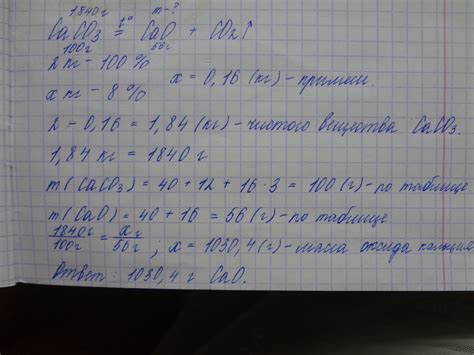 1840г m-?
CaCO3 t°= CaO + CO2↑
100г 56г
2 кг - 100%
x кг - 8%
x = 0,16 (кг) - примеси.
2 - 0,16 = 1,84 (кг) - чистого вещества CaCO3.
1,84 кг = 1840 г
m(CaCO3) = 40 + 12 + 16·3 = 100(г) - по таблице
m(CaO) = 40 + 16 = 56(г) - по таблице
1840г/100г = xг/56г, x = 1030,4(г) - масса оксида кальция
Ответ: 1030,4 г CaO.